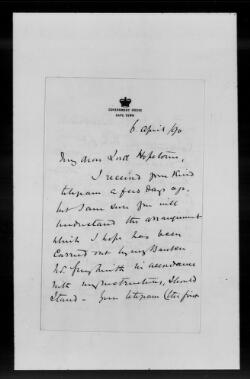 GOVERNMENT HOUSE
CAPE TOWN
6 April /90
My dear Lord Hopetoun,
I received your kind
telegram a few days ago.
but I am sure you will
understand the arrangement
which I hope has been
carried out by my Banker
in accordance
with my instructions, should
stand - Your telegram (the first